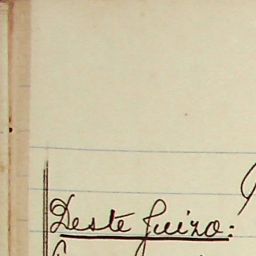 Deste Juizo: